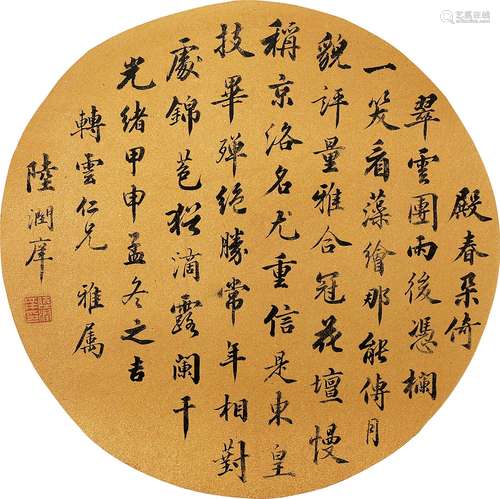 殿春朵倚
翠雲團雨後憑欄
一笑看藻繪那能傳月
貌評量雅合冠花壇慢
稱京洛名尤重信是東皇
技畢殫絕勝常年相對
處錦苞猶滴露闌干
光緒甲申孟冬之吉
轉雲仁兄 雅屬
陸潤庠